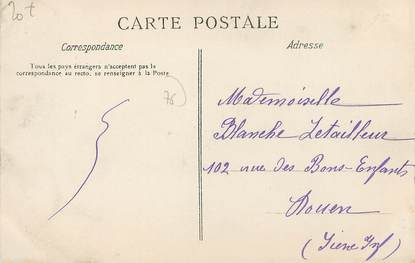 20+
CARTE POSTALE
Correspondance
Adresse
Tous les pays étrangers n'acceptent pas la
correspondance au recto, se renseigner à la Poste
76
Mademoiselle
Blanche Letailleur
102 rue des Bons-Enfants
Rouen
(Seine Inf)